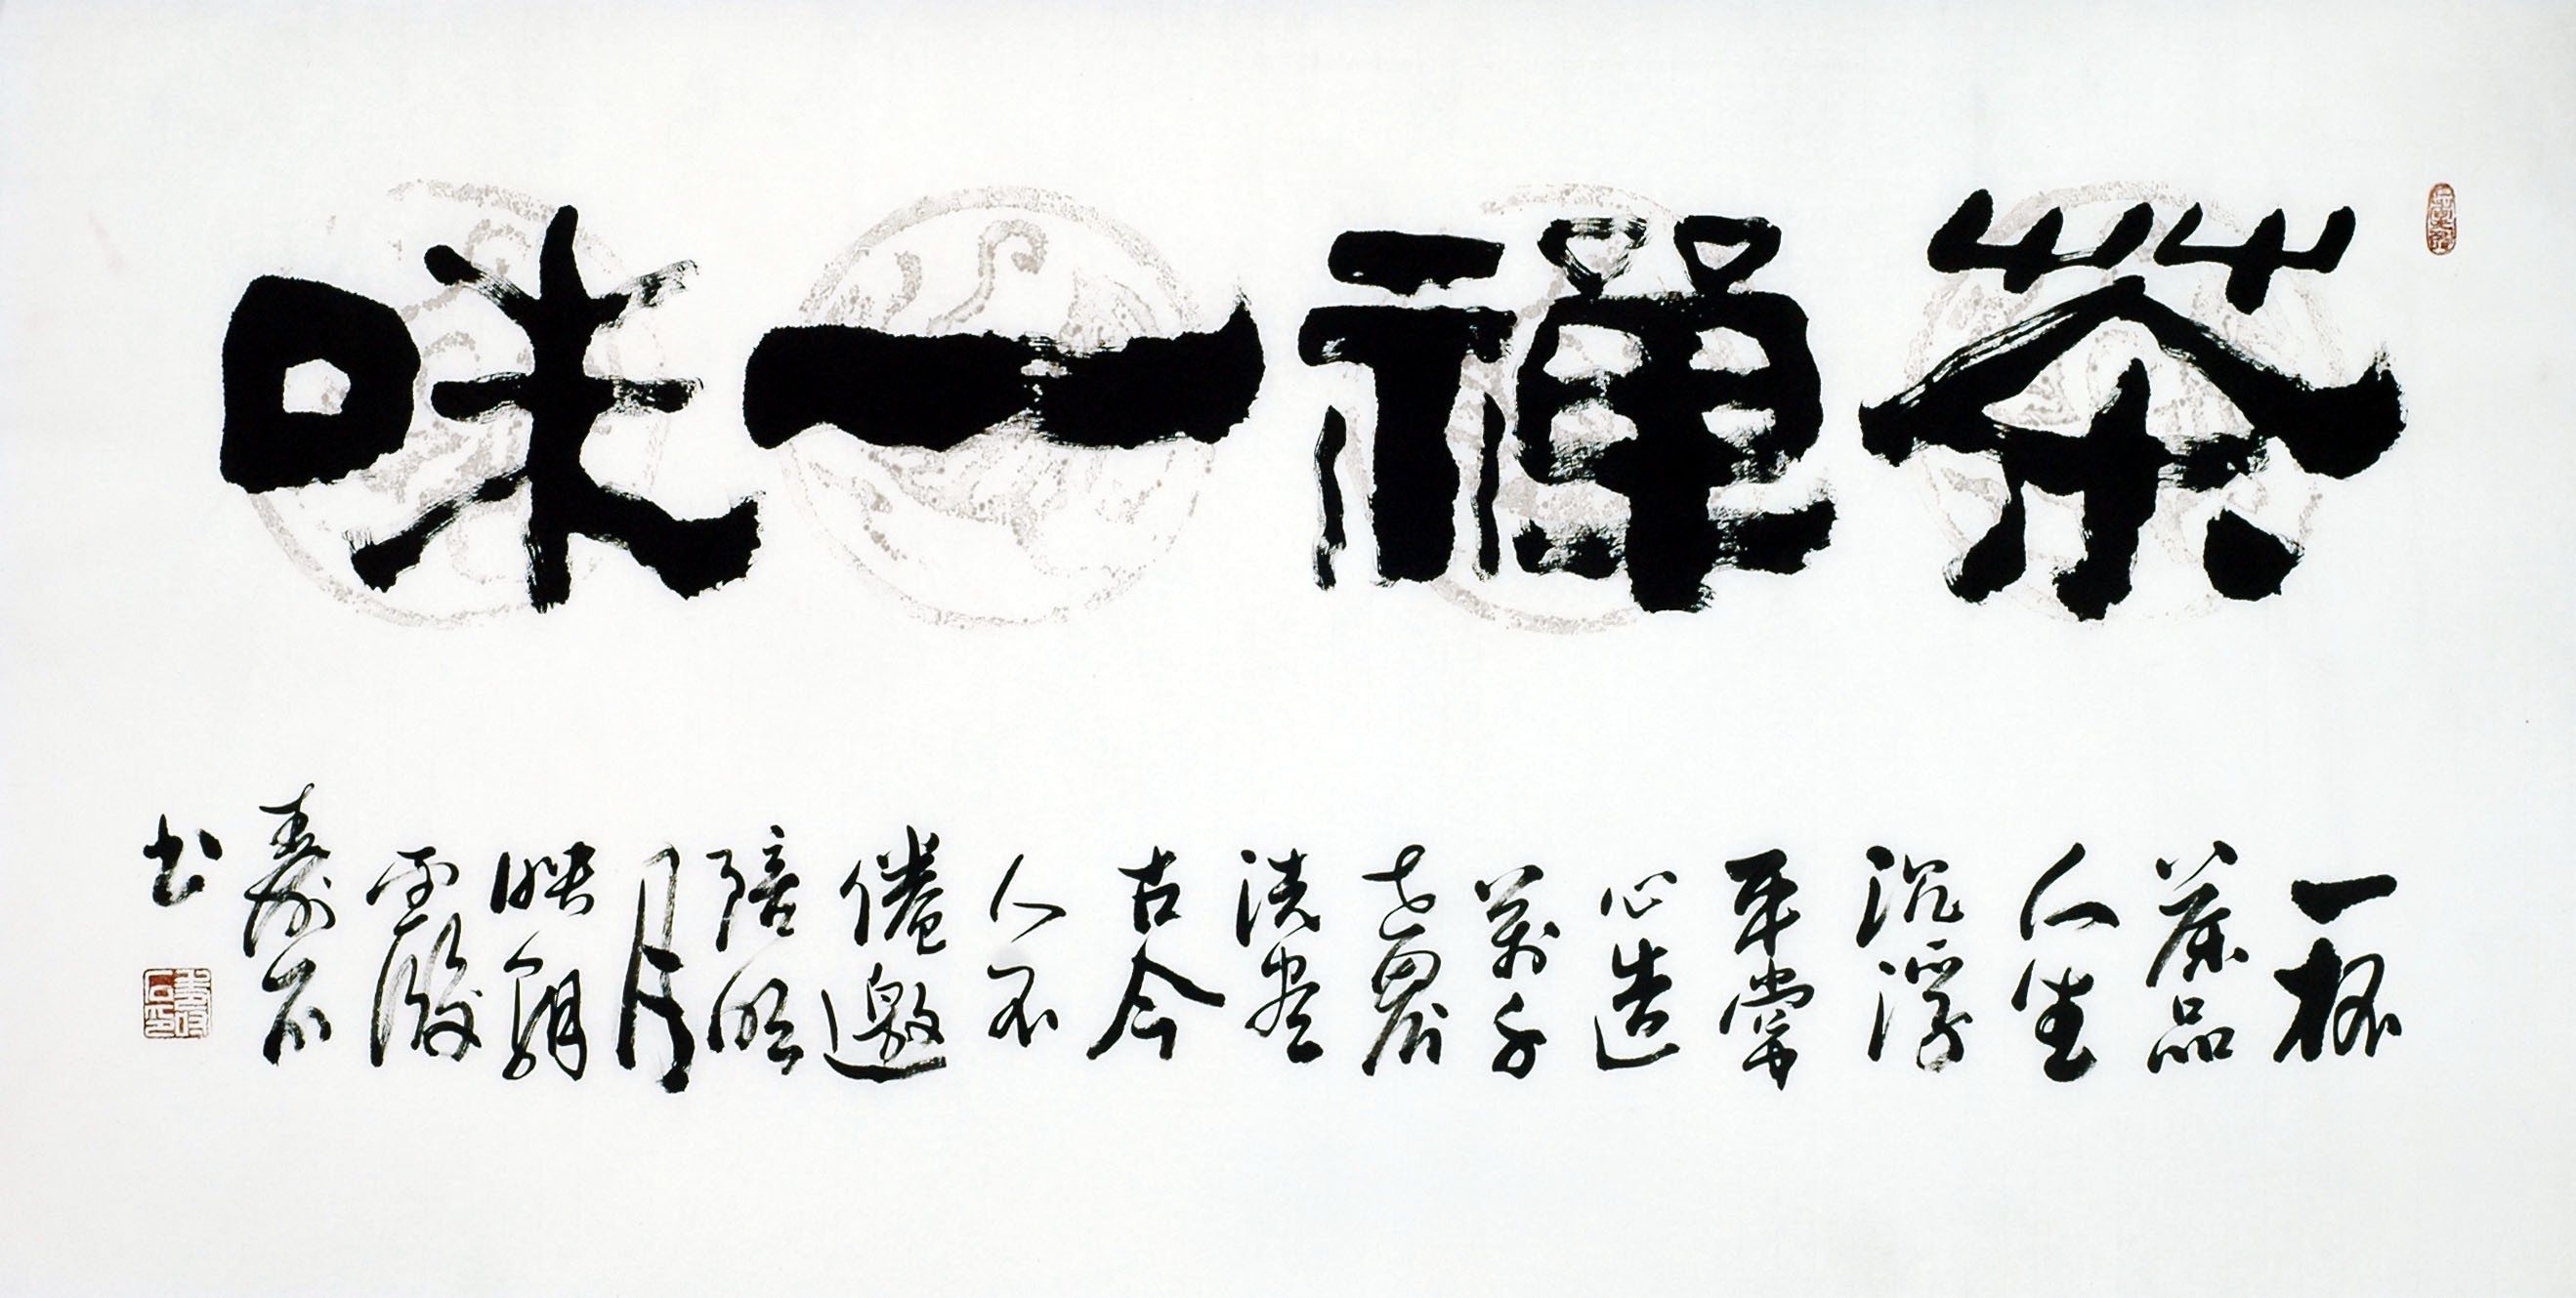 茶禪一味
一杯
茶品
人生
沉浮
平常
心造
萬千
世界
洗盡
古今
人不
倦邀
陪明
月
映朝
霞
壽石
書